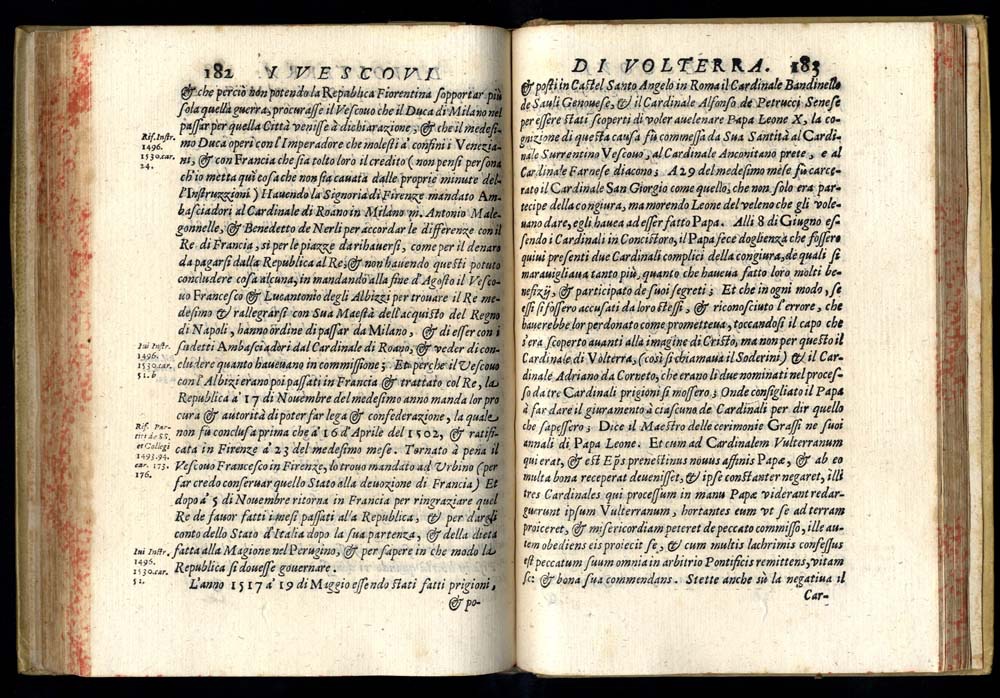 182 I VESCOVI
& che perciò non potendo la Republica Fiorentina sopportar più
sola quella guerra, procurasse il Vescouo che il Duca di Milano nel
passar per quella Città venisse à dichiarazione, & che il medesi-
mo Duca operi con l'Imperadore che molesti a' confini i Venezia-
ni, & con Francia che sia tolto loro il credito (non pensi persona
ch'io metta quì cosa che non sia cauata dalle proprie minute del-
l'Instruzzioni) Hauendo la Signoria di Firenze mandato Am-
basciadori al Cardinale di Roano in Milano m. Antonio Male-
gonnelle, & Benedetto de Nerli per accordar le differenze con il
Re di Francia, si per le piazze da rihauersi, come per il denaro
da pagarsi dalla Republica al Re; & non hauendo questi potuto
concludere cosa alcuna, in mandando alla fine d'Agosto il Vesco-
uo Francesco & Lucantonio degli Albizzi per trouare il Re me-
desimo & rallegrarsi con Sua Maestà dell'acquisto del Regno
di Napoli, hanno ordine di passar da Milano, & di esser con i
sudetti Ambasciadori dal Cardinale di Roano, & veder di con-
cludere quanto haueuano in commissione; Et perche il Vescouo
con l'Albizi erano poi passati in Francia & trattato col Re, la
Republica à 17 di Nouembre del medesimo anno manda lor pro
cura & autorità di poter far lega & confederazione, la quale
non fù conclusa prima che a' 16 d'Aprile del 1502, & ratifi-
cata in Firenze à 23 del medesimo mese. Tornato à pena il
Vescouo Francesco in Firenze, lo trouo mandato ad Vrbino (per
far credo conseruar quello Stato alla deuozione di Francia) Et
dopo à 5 di Nouembre ritorna in Francia per ringraziare quel
Re de fauor fatti i mesi passati al'a Republica, & per dargli
conto dello Stato d'Italia dopo la sua partenza, & della dieta
fatta alla Magione nel Perugino, & per sapere in che modo la
Republica si douesse gouernare.
L'anno 1517 a' 19 di Maggio essendo stati fatti prigioni,
& po-
Rif. Instr.
1496.
1530. car.
24.
Iui Instr.
1496.
1530. car.
51. b
Rif. Par-
titi de SS.
et Collegi
1493. 94.
car. 173.
176.
Iui Instr.
1496.
1530. car.
52.
DI VOLTERRA. 183
& posti in Castel Santo Angelo in Roma il Cardinale Bandinello
de Sauli Genouese, & il Cardinale Alfonso de Petrucci Senese
per essere stati scoperti di voler auelenare Papa Leone X, la co-
gnizione di questa causa fù commessa da Sua Santità al Cardi-
nale Surrentino Vescouo, al Cardinale Anconitano prete, e al
Cardinale Farnese diacono; A 29 del medesimo mese fù carce-
rato il Cardinale San Giorgio come quello, che non solo era par-
tecipe della congiura, ma morendo Leone del veleno che gli vole-
uano dare, egli hauea ad esser fatto Papa. Alli 8 di Giugno es-
sendo i Cardinali in Concistoro, il Papa fece doglienza che fossero
quiui presenti due Cardinali complici della congiura, de quali si
marauigliaua tanto più, quanto che haueua fatto loro molti be-
nefizij, & participato de suoi segreti; Et che in ogni modo, se
essi si fossero accusati da loro stessi, & riconosciuto l'errore, che
hauerebbe lor perdonato come prometteua, toccandosi il capo che
s'era scoperto auanti alla imagine di Cristo, ma non per questo il
Cardinale di Volterra, (così si chiamaua il Soderini) & il Car-
dinale Adriano da Corneto, che erano li due nominati nel proces-
so da tre Cardinali prigioni si mossero; Onde consigliato il Papa
à far dare il giuramento à ciascuno de Cardinali per dir quello
che sapessero; Dice il Maestro delle cerimonie Grassi ne suoi
annali di Papa Leone. Et cum ad Cardinalem Vulterranum
qui erat, & est Eps prenestinus nouus affinis Papæ, & ab eo
multa bona receperat deuenisset, & ipse constanter negaret, illi
tres Cardinales qui processum in manu Papæ viderant redar-
guerunt ipsum Vulterranum, hortantes eum vt se ad terram
proiceret, & misericordiam peteret de peccato commisso, ille au-
tem obediens eis proiecit se, & cum multis lachrimis confessus
est peccatum suum omnia in arbitrio Pontificis remittens, vitam
sc: & bona sua commendans. Stette anche sù la negatiua il
Car-